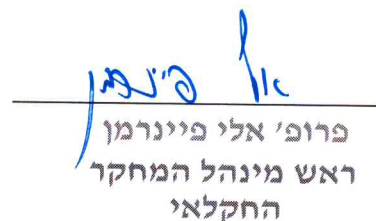 אלי פיינרמן
פרופ׳ אלי פיינרמן
ראש מינהל המחקר
החקלאי